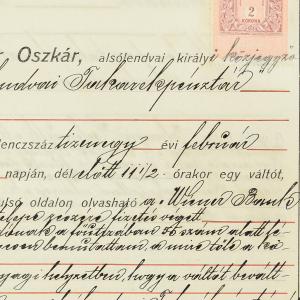 2
KORONA
r Oszkár, alsólendvai királyi közjegyző
ndvai Takarékpénztár
lenczszáz tizenegy évi február
napján, dél előtt 11 1/2 órakor egy váltót,
ulsó oldalon olvasható a „Wiener Bank
fizetés végett
szám alatt
bemutattam, a mire tőle a
helyzetben, hogy a váltót bevált-